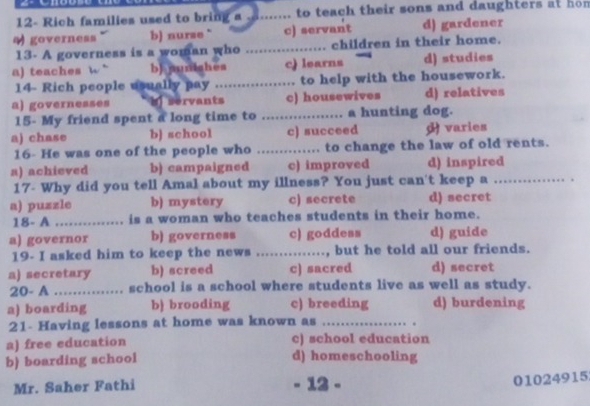 12- Rich families used to bring a ............ to teach their sons and daughters at hom
a) governess b) nurse c) servant d) gardener
13- A governess is a woman who ................ children in their home.
a) teaches b) punishes c) learns d) studies
14- Rich people usually pay ................ to help with the housework.
a) governesses b) servants c) housewives d) relatives
15- My friend spent a long time to ................ a hunting dog.
a) chase b) school c) succeed d) varies
16- He was one of the people who ............. to change the law of old rents.
a) achieved b) campaigned c) improved d) inspired
17- Why did you tell Amal about my illness? You just can't keep a .............. .
a) puzzle b) mystery c) secrete d) secret
18- A .............. is a woman who teaches students in their home.
a) governor b) governess c) goddess d) guide
19- I asked him to keep the news .............., but he told all our friends.
a) secretary b) screed c) sacred d) secret
20- A .............. school is a school where students live as well as study.
a) boarding b) brooding c) breeding d) burdening
21- Having lessons at home was known as ................. .
a) free education c) school education
b) boarding school d) homeschooling
Mr. Saher Fathi - 12 - 01024915